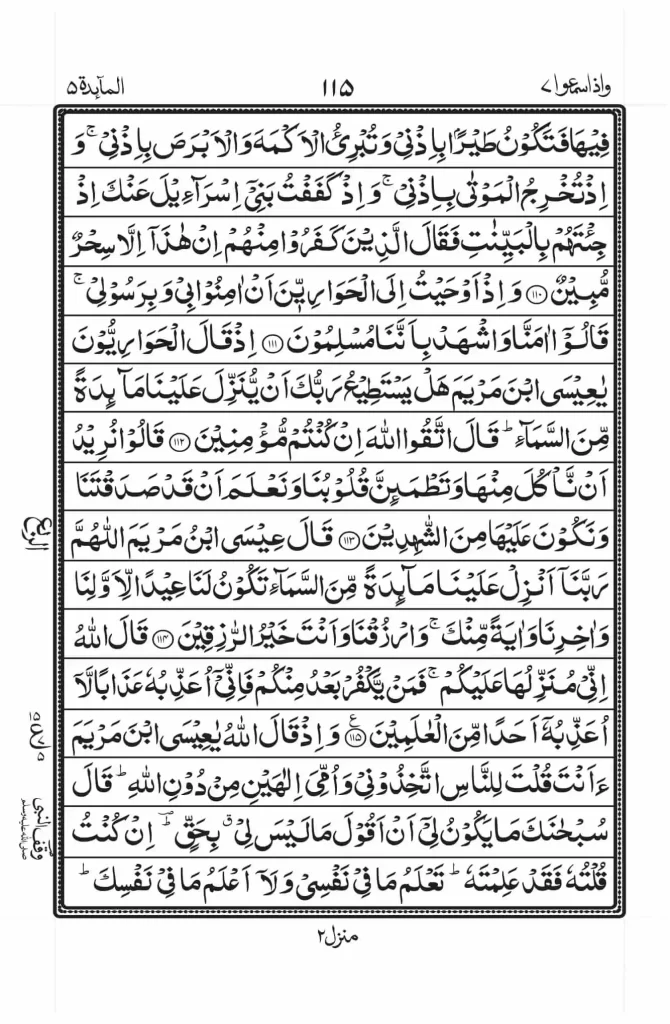 واذاسمعوا ۷
۱۱۵
المآئدة ۵
فِيْهَا فَتَكُوْنُ طَيْرًۢا بِاِذْنِيْ وَتُبْرِئُ الْاَكْمَهَ وَالْاَبْرَصَ بِاِذْنِيْ ۚ وَ
اِذْ تُخْرِجُ الْمَوْتٰى بِاِذْنِيْ ۚ وَاِذْ كَفَفْتُ بَنِيْٓ اِسْرَآءِيْلَ عَنْكَ اِذْ
جِئْتَهُمْ بِالْبَيِّنٰتِ فَقَالَ الَّذِيْنَ كَفَرُوْا مِنْهُمْ اِنْ هٰذَآ اِلَّا سِحْرٌ
مُّبِيْنٌ ۝۱۱۰ وَاِذْ اَوْحَيْتُ اِلَى الْحَوَارِيّٖنَ اَنْ اٰمِنُوْا بِيْ وَبِرَسُوْلِيْ ۚ
قَالُوْٓا اٰمَنَّا وَاشْهَدْ بِاَنَّنَا مُسْلِمُوْنَ ۝۱۱۱ اِذْ قَالَ الْحَوَارِيُّوْنَ
يٰعِيْسَى ابْنَ مَرْيَمَ هَلْ يَسْتَطِيْعُ رَبُّكَ اَنْ يُّنَزِّلَ عَلَيْنَا مَآئِدَةً
مِّنَ السَّمَآءِ ؕ قَالَ اتَّقُوا اللّٰهَ اِنْ كُنْتُمْ مُّؤْمِنِيْنَ ۝۱۱۲ قَالُوْا نُرِيْدُ
اَنْ نَّاْكُلَ مِنْهَا وَتَطْمَئِنَّ قُلُوْبُنَا وَنَعْلَمَ اَنْ قَدْ صَدَقْتَنَا
وَنَكُوْنَ عَلَيْهَا مِنَ الشّٰهِدِيْنَ ۝۱۱۳ قَالَ عِيْسَى ابْنُ مَرْيَمَ اللّٰهُمَّ
رَبَّنَآ اَنْزِلْ عَلَيْنَا مَآئِدَةً مِّنَ السَّمَآءِ تَكُوْنُ لَنَا عِيْدًا لِّاَوَّلِنَا
وَاٰخِرِنَا وَاٰيَةً مِّنْكَ ۚ وَارْزُقْنَا وَاَنْتَ خَيْرُ الرّٰزِقِيْنَ ۝۱۱۴ قَالَ اللّٰهُ
اِنِّيْ مُنَزِّلُهَا عَلَيْكُمْ ۚ فَمَنْ يَّكْفُرْ بَعْدُ مِنْكُمْ فَاِنِّيْٓ اُعَذِّبُهٗ عَذَابًا لَّآ
اُعَذِّبُهٗٓ اَحَدًا مِّنَ الْعٰلَمِيْنَ ۝۱۱۵ۧ وَاِذْ قَالَ اللّٰهُ يٰعِيْسَى ابْنَ مَرْيَمَ
ءَاَنْتَ قُلْتَ لِلنَّاسِ اتَّخِذُوْنِيْ وَاُمِّيَ اِلٰهَيْنِ مِنْ دُوْنِ اللّٰهِ ؕ قَالَ
سُبْحٰنَكَ مَا يَكُوْنُ لِيْٓ اَنْ اَقُوْلَ مَا لَيْسَ لِيْ ۗ بِحَقٍّ ؕ اِنْ كُنْتُ
قُلْتُهٗ فَقَدْ عَلِمْتَهٗ ؕ تَعْلَمُ مَا فِيْ نَفْسِيْ وَلَآ اَعْلَمُ مَا فِيْ نَفْسِكَ ؕ
الربع
وقف النبى
صلى الله عليه وسلم
منزل ۲